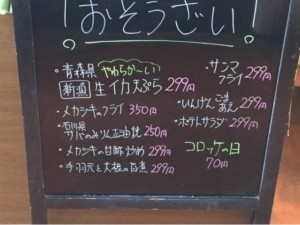 おそうざい!
・青森県 やわらか〜い
新潟 生イカ天ぷら 299円
・メカジキのフライ 350円
・石川県
サバのみりん正油焼 250円
・メカジキの甘酢炒め 299円
・手羽元と大根の旨煮 299円
・サンマ
フライ 299円
・いんげんごま
あえ 299円
・ホテルサラダ 299円
コロッケの日
70円